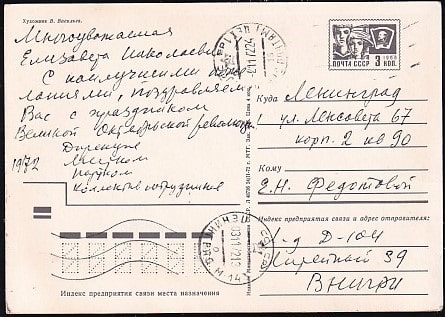 Художник В. Васильев.
Многоуважаемая
Елизавета Николаевна
С наилучшими поже-
ланиями, поздравляем
Вас с праздником
Великой Октябрьской революции
Дирекция
Местком
1972 Партком
Коллектив сотрудников
ПОЧТА СССР
3 КОП.
1968
Куда Ленинград
ул. Ленсовета 67
корп. 2 кв 90
Кому
Е.Н. Федотовой
Индекс предприятия связи и адрес отправителя:
Л-д Д-104
Литейный 39
Внигри
Индекс предприятия связи места назначения